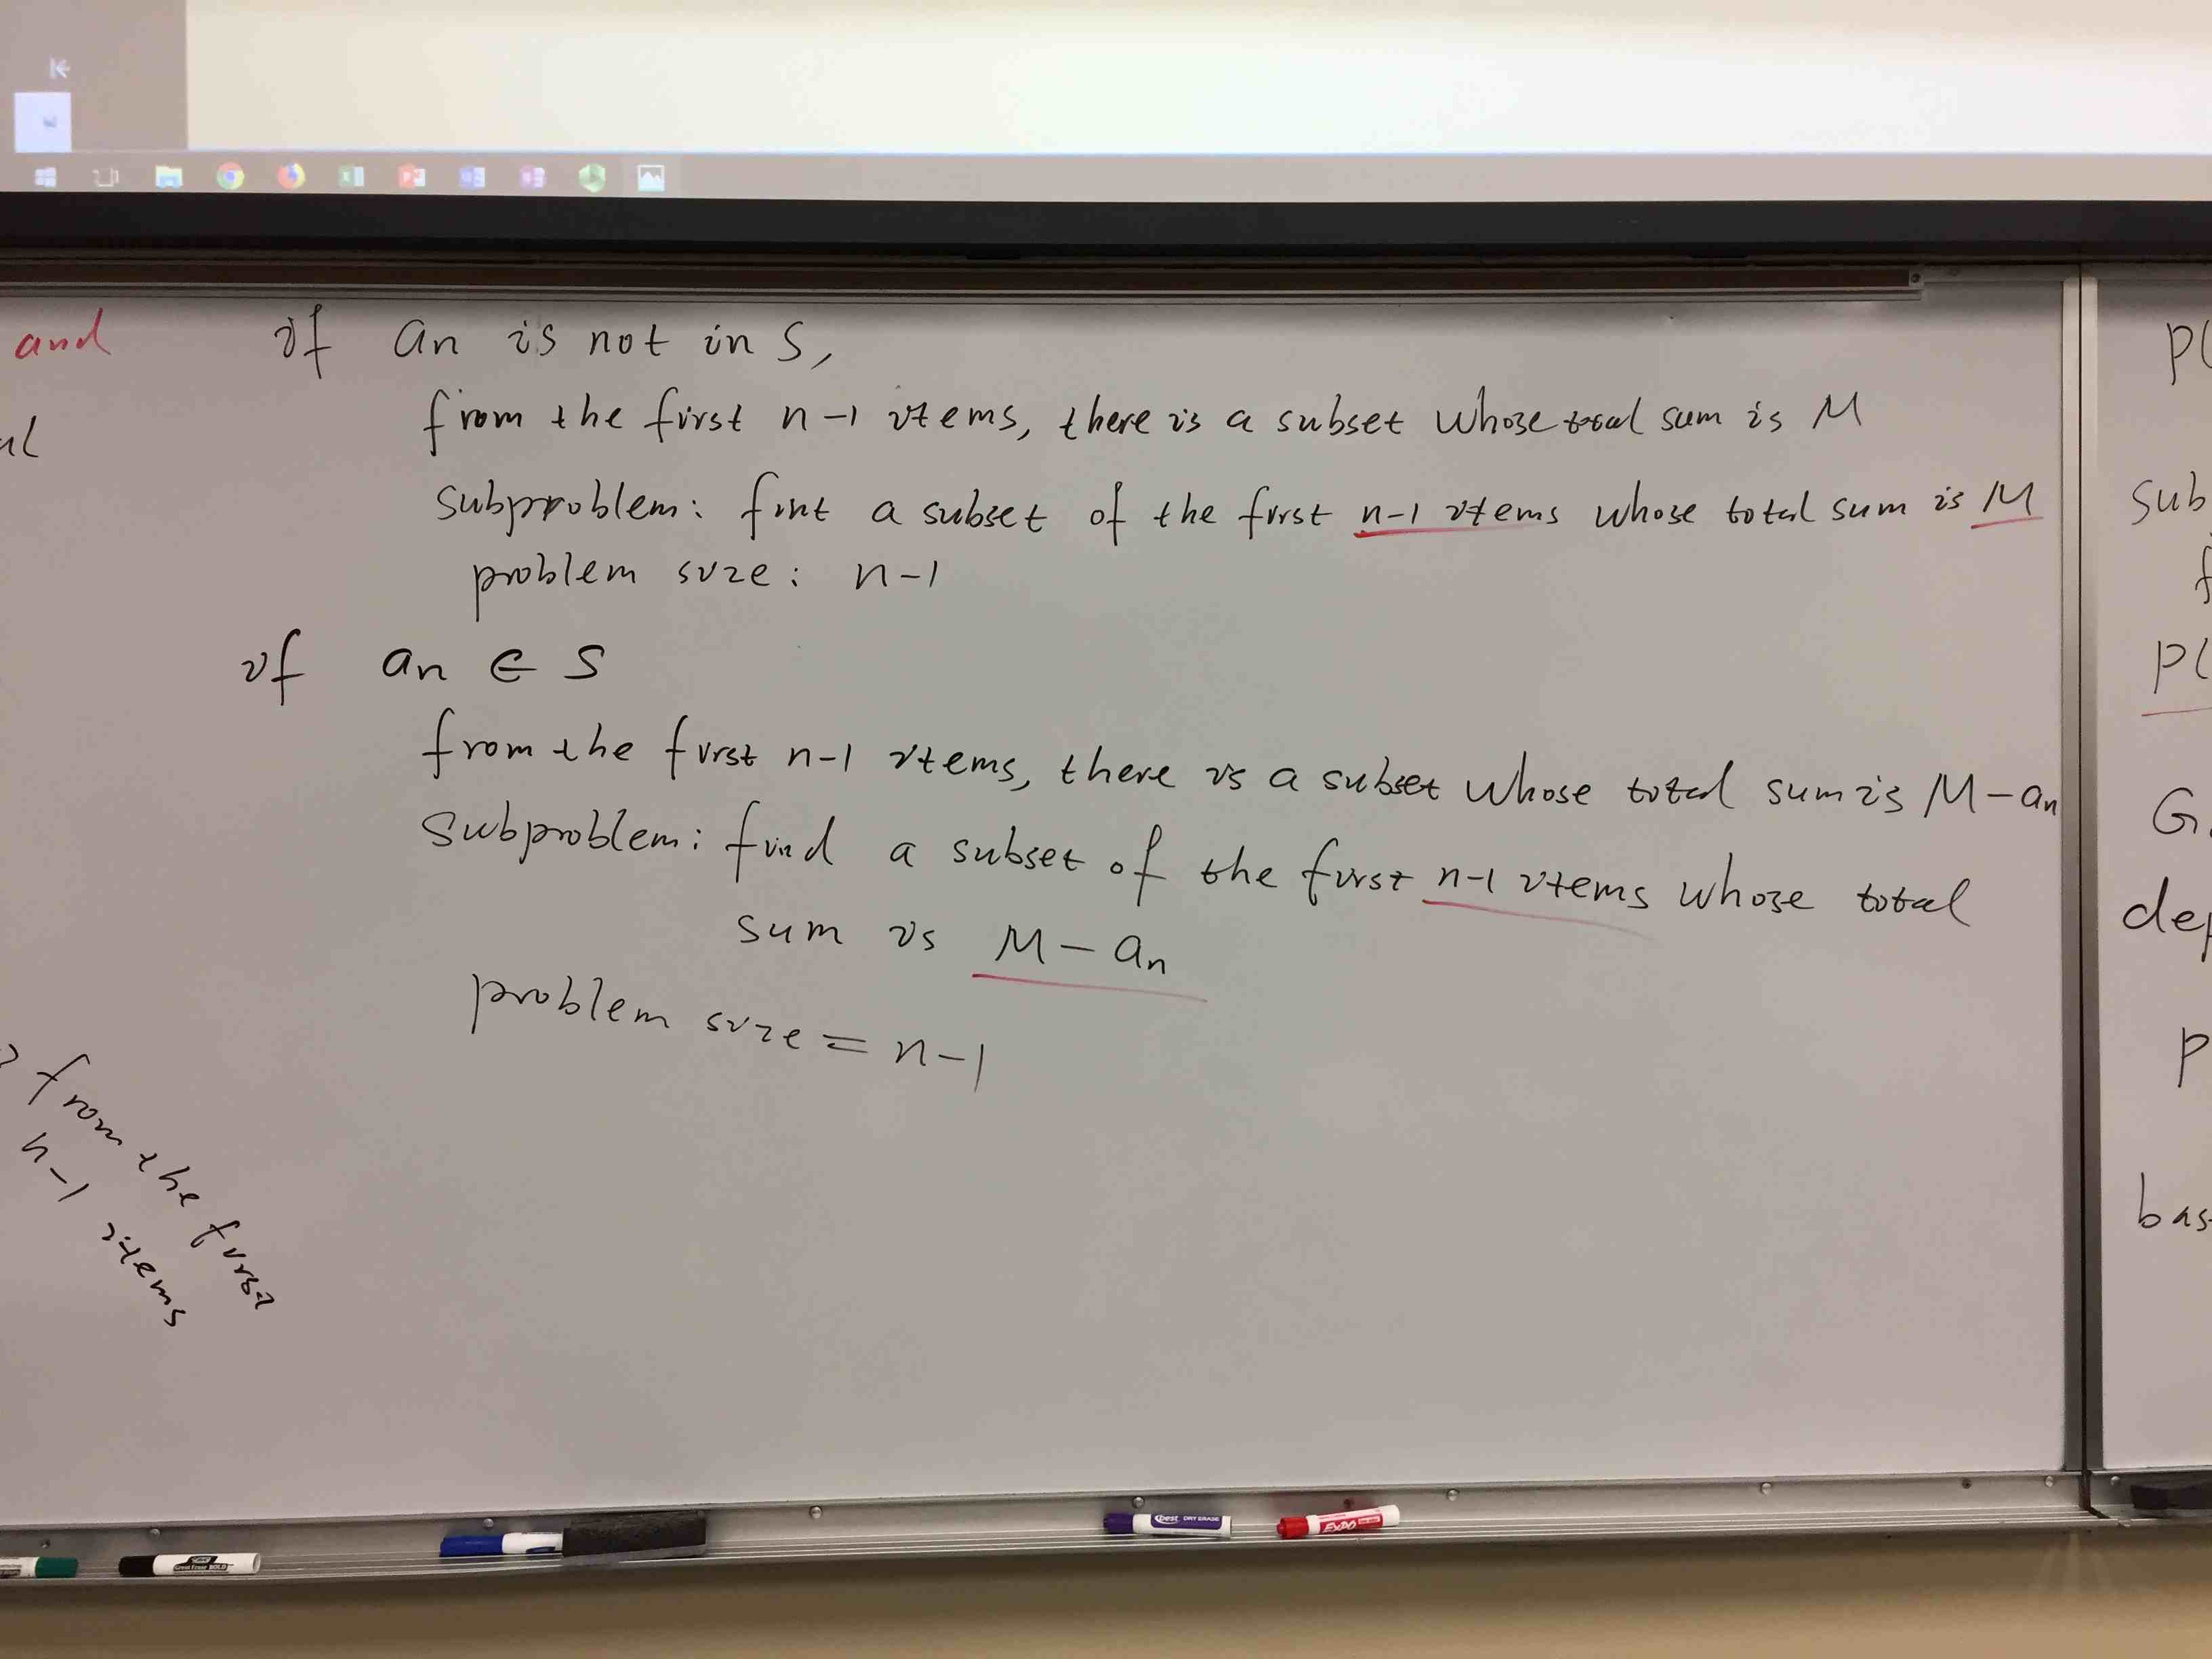 and
if an is not in S,
from the first n-1 items, there is a subset whose total sum is M
subproblem: fint a subset of the first n-1 items whose total sum is M
problem size: n-1
if an ∈ S
from the first n-1 items, there is a subset whose total sum is M-an
Subproblem: find a subset of the first n-1 items whose total
sum is M-an
problem size = n-1
from the first
n-1 items
P(
sub
f
P(
G
dep
P
bas
best DRY ERASE
EXPO